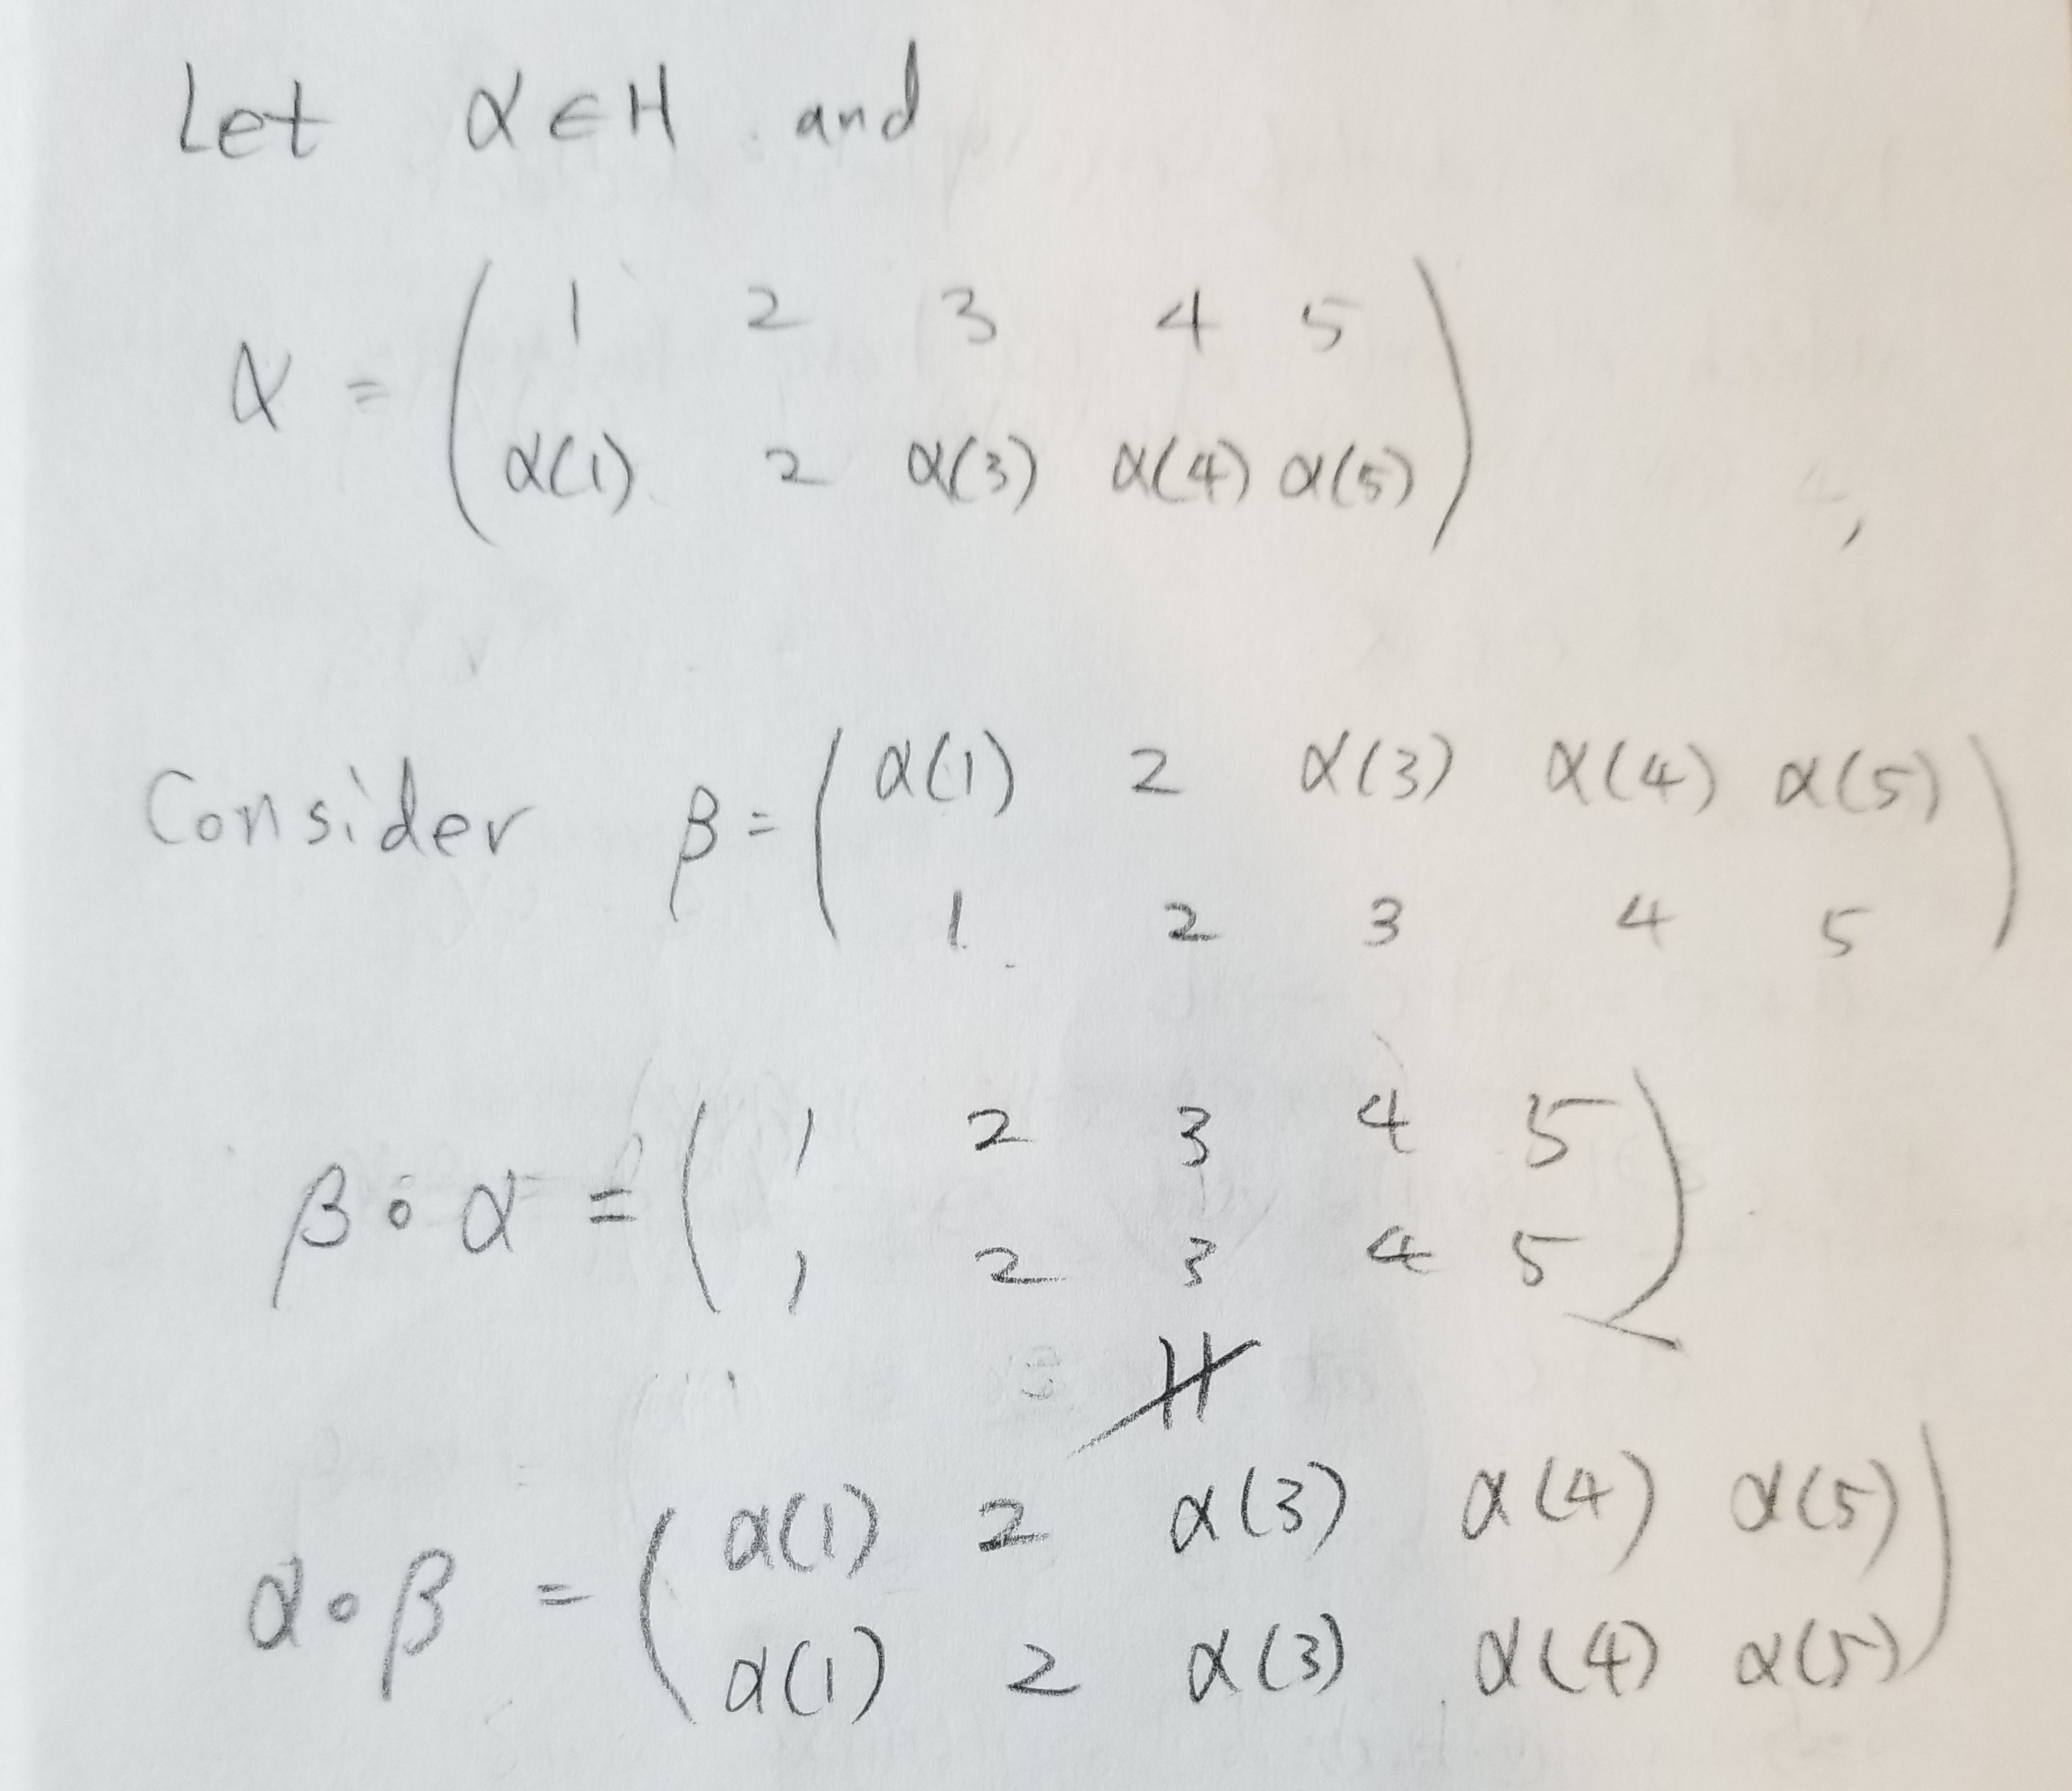 Let α ∈ H and
α = ( 1 2 3 4 5
α(1) 2 α(3) α(4) α(5) ) ,
Consider β = ( α(1) 2 α(3) α(4) α(5)
1 2 3 4 5 )
β ∘ α = ( 1 2 3 4 5
1 2 3 4 5 )
α ∘ β = ( α(1) 2 α(3) α(4) α(5)
α(1) 2 α(3) α(4) α(5) )